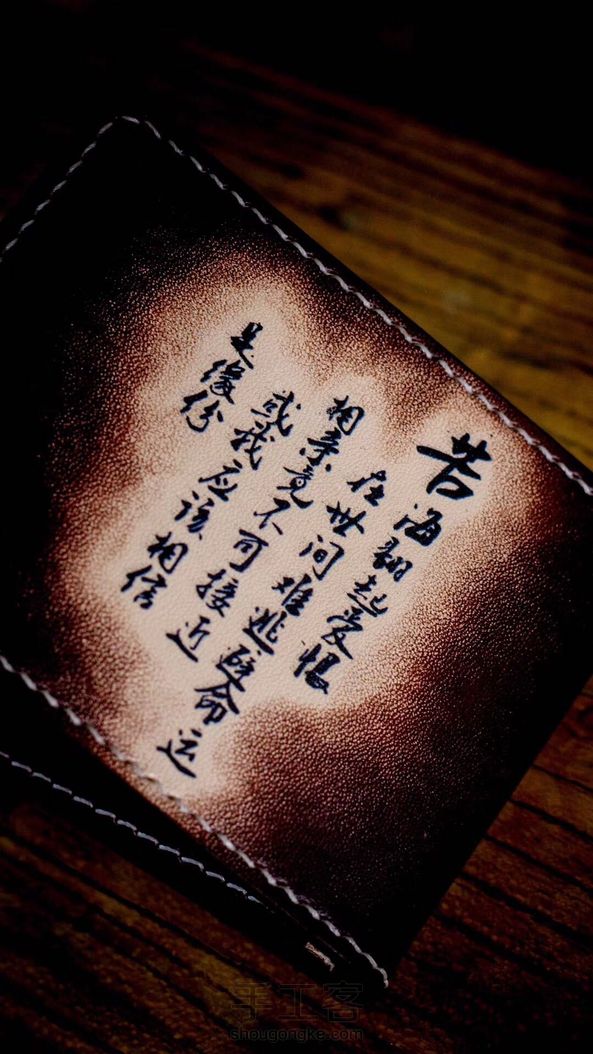 苦海翻起爱恨
在世间难逃避命运
相亲竟不可接近
或我应该相信
是缘份
手工客
shougongke.com